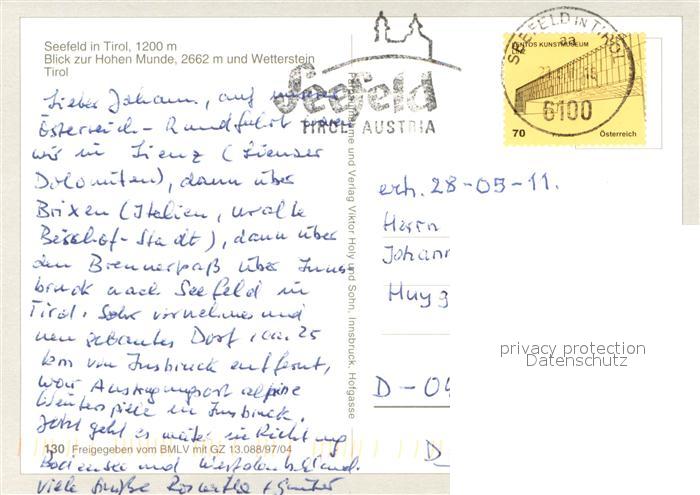 Seefeld in Tirol, 1200 m
Blick zur Hohen Munde, 2662 m und Wetterstein
Tirol
Lieber Johann, auf unserer
Österreich-Rundfahrt waren
wir in Lienz (Lienzer
Dolomiten), dann über
Brixen (Italien, uralte
Bischof-Stadt), dann über
den Brennerpaß über Inns
bruck nach Seefeld in
Tirol. Sehr vornehmes und
neu erbautes Dorf, ca. 25
km von Insbruck entfernt,
war Austragungsort alpine
Winterspiele in Insbruck.
Jetzt geht es weiter in Richtung
Bodensee und Westdeutschland.
Viele Grüße Roswitha + Günter
130 Freigegeben vom BMLV mit GZ 13.088/97/04
und Verlag Viktor Holy und Sohn, Innsbruck, Hofgasse
Seefeld
TIROL AUSTRIA
SEEFELD IN TIROL
aa
6100
KUNSTMUSEUM
70
Österreich
erh. 28-05-11.
Herrn
Johann
Huyg
D-04
D
privacy protection
Datenschutz